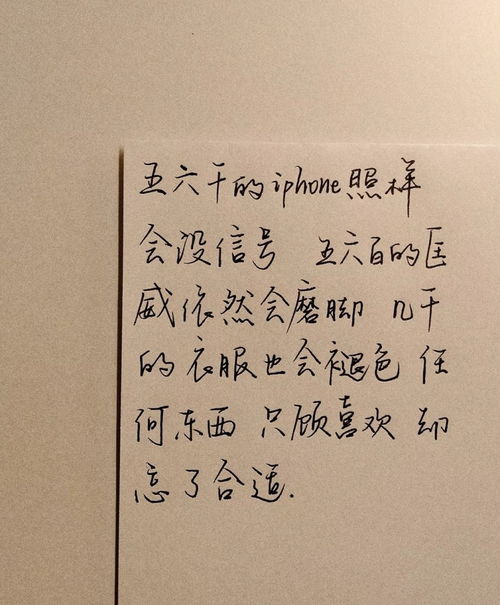 五六千的iphone照样
会没信号 五六百的匡
威依然会磨脚 几千
的衣服也会褪色 任
何东西 只顾喜欢 却
忘了合适.